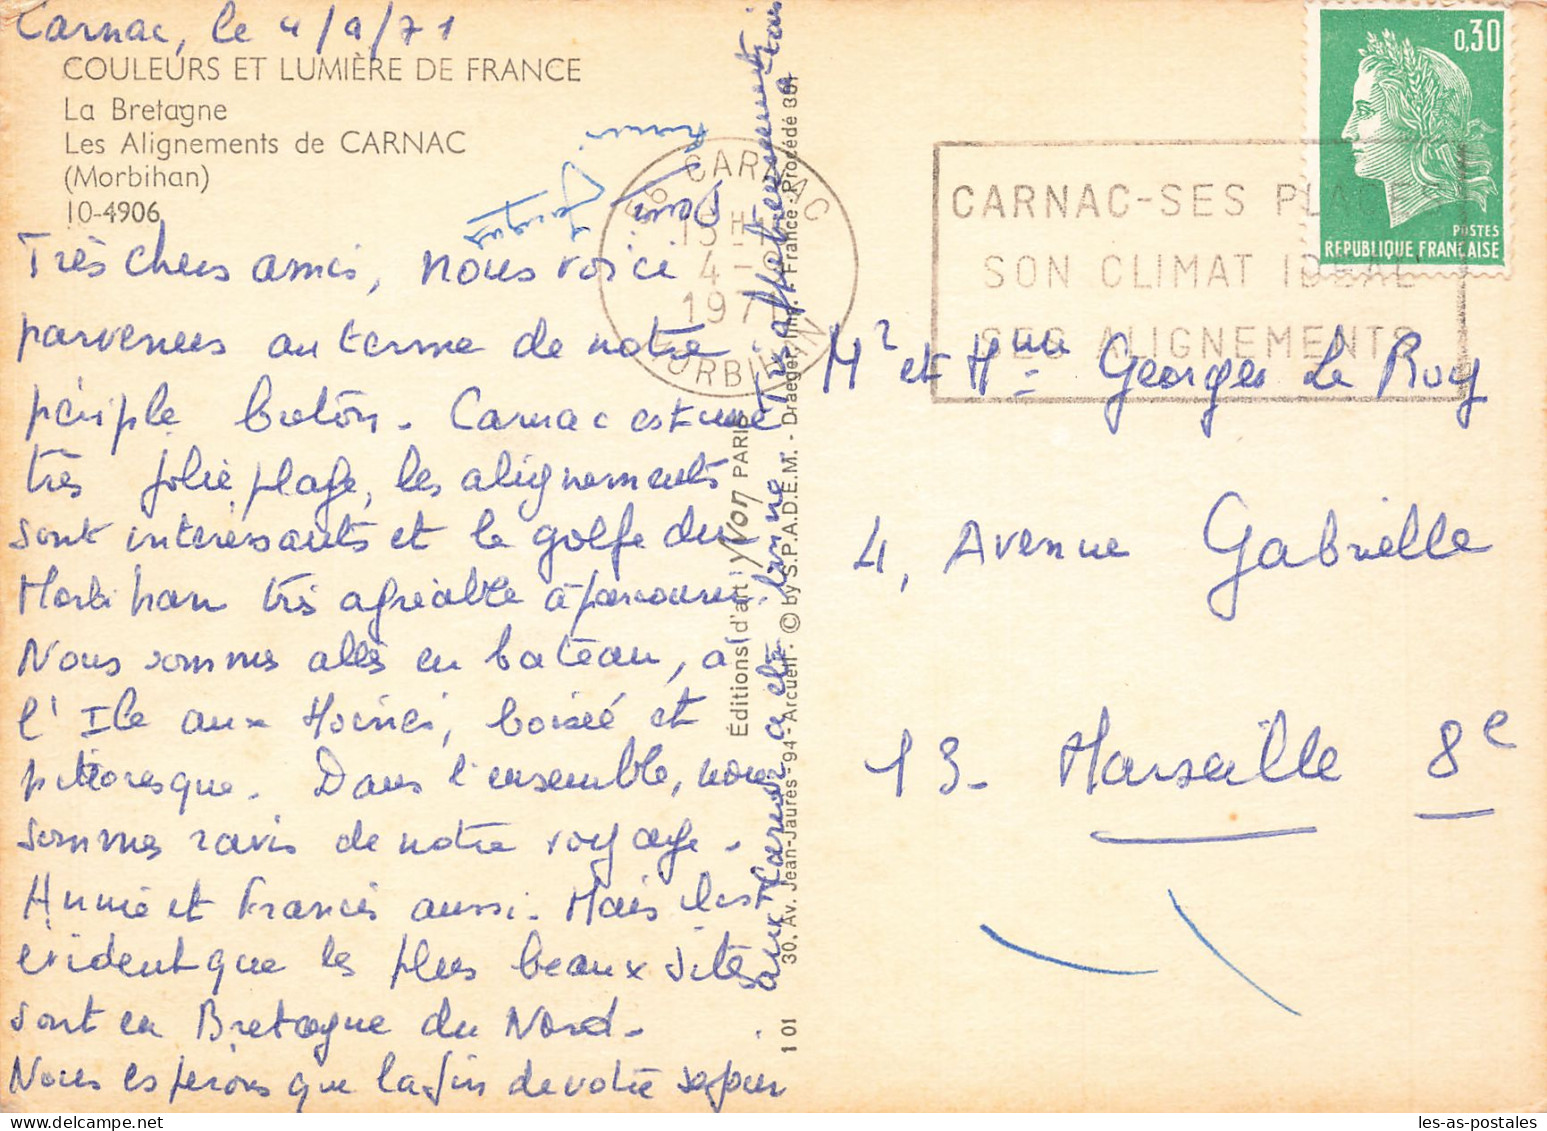 Carnac, le 4/9/71
COULEURS ET LUMIÈRE DE FRANCE
La Bretagne
Les Alignements de CARNAC
(Morbihan)
10-4906
Très chers amis, nous voici
parvenus au terme de notre
périple breton. Carnac est une
très jolie plage, les alignements
sont intéressants et le golfe du
Morbihan très agréable à parcourir.
Nous sommes allés en bateau, à
l'Ile aux Moines, boisée et
pittoresque. Dans l'ensemble, nous
sommes ravis de notre voyage.
Annie et Francis aussi. Mais c'est
évident que les plus beaux sites
sont en Bretagne du Nord.
Nous espérons que la fin de votre séjour
aux a été bonne. affectueusement
Éditions d'art YVON PARIS
1 01 30, Av. Jean-Jaurès - 94 - Arcueil - © by S.P.A.D.E.M. - Draeger, Imp. France - Procédé 301
56 CARNAC
15H
4-9
1971
MORBIHAN
CARNAC-SES PLAGES
SON CLIMAT IDEAL
SES ALIGNEMENTS
0,30
POSTES
REPUBLIQUE FRANCAISE
Mr et Mme Georges Le Roy
4, Avenue Gabrielle
13 - Marseille 8e
les-as-postales